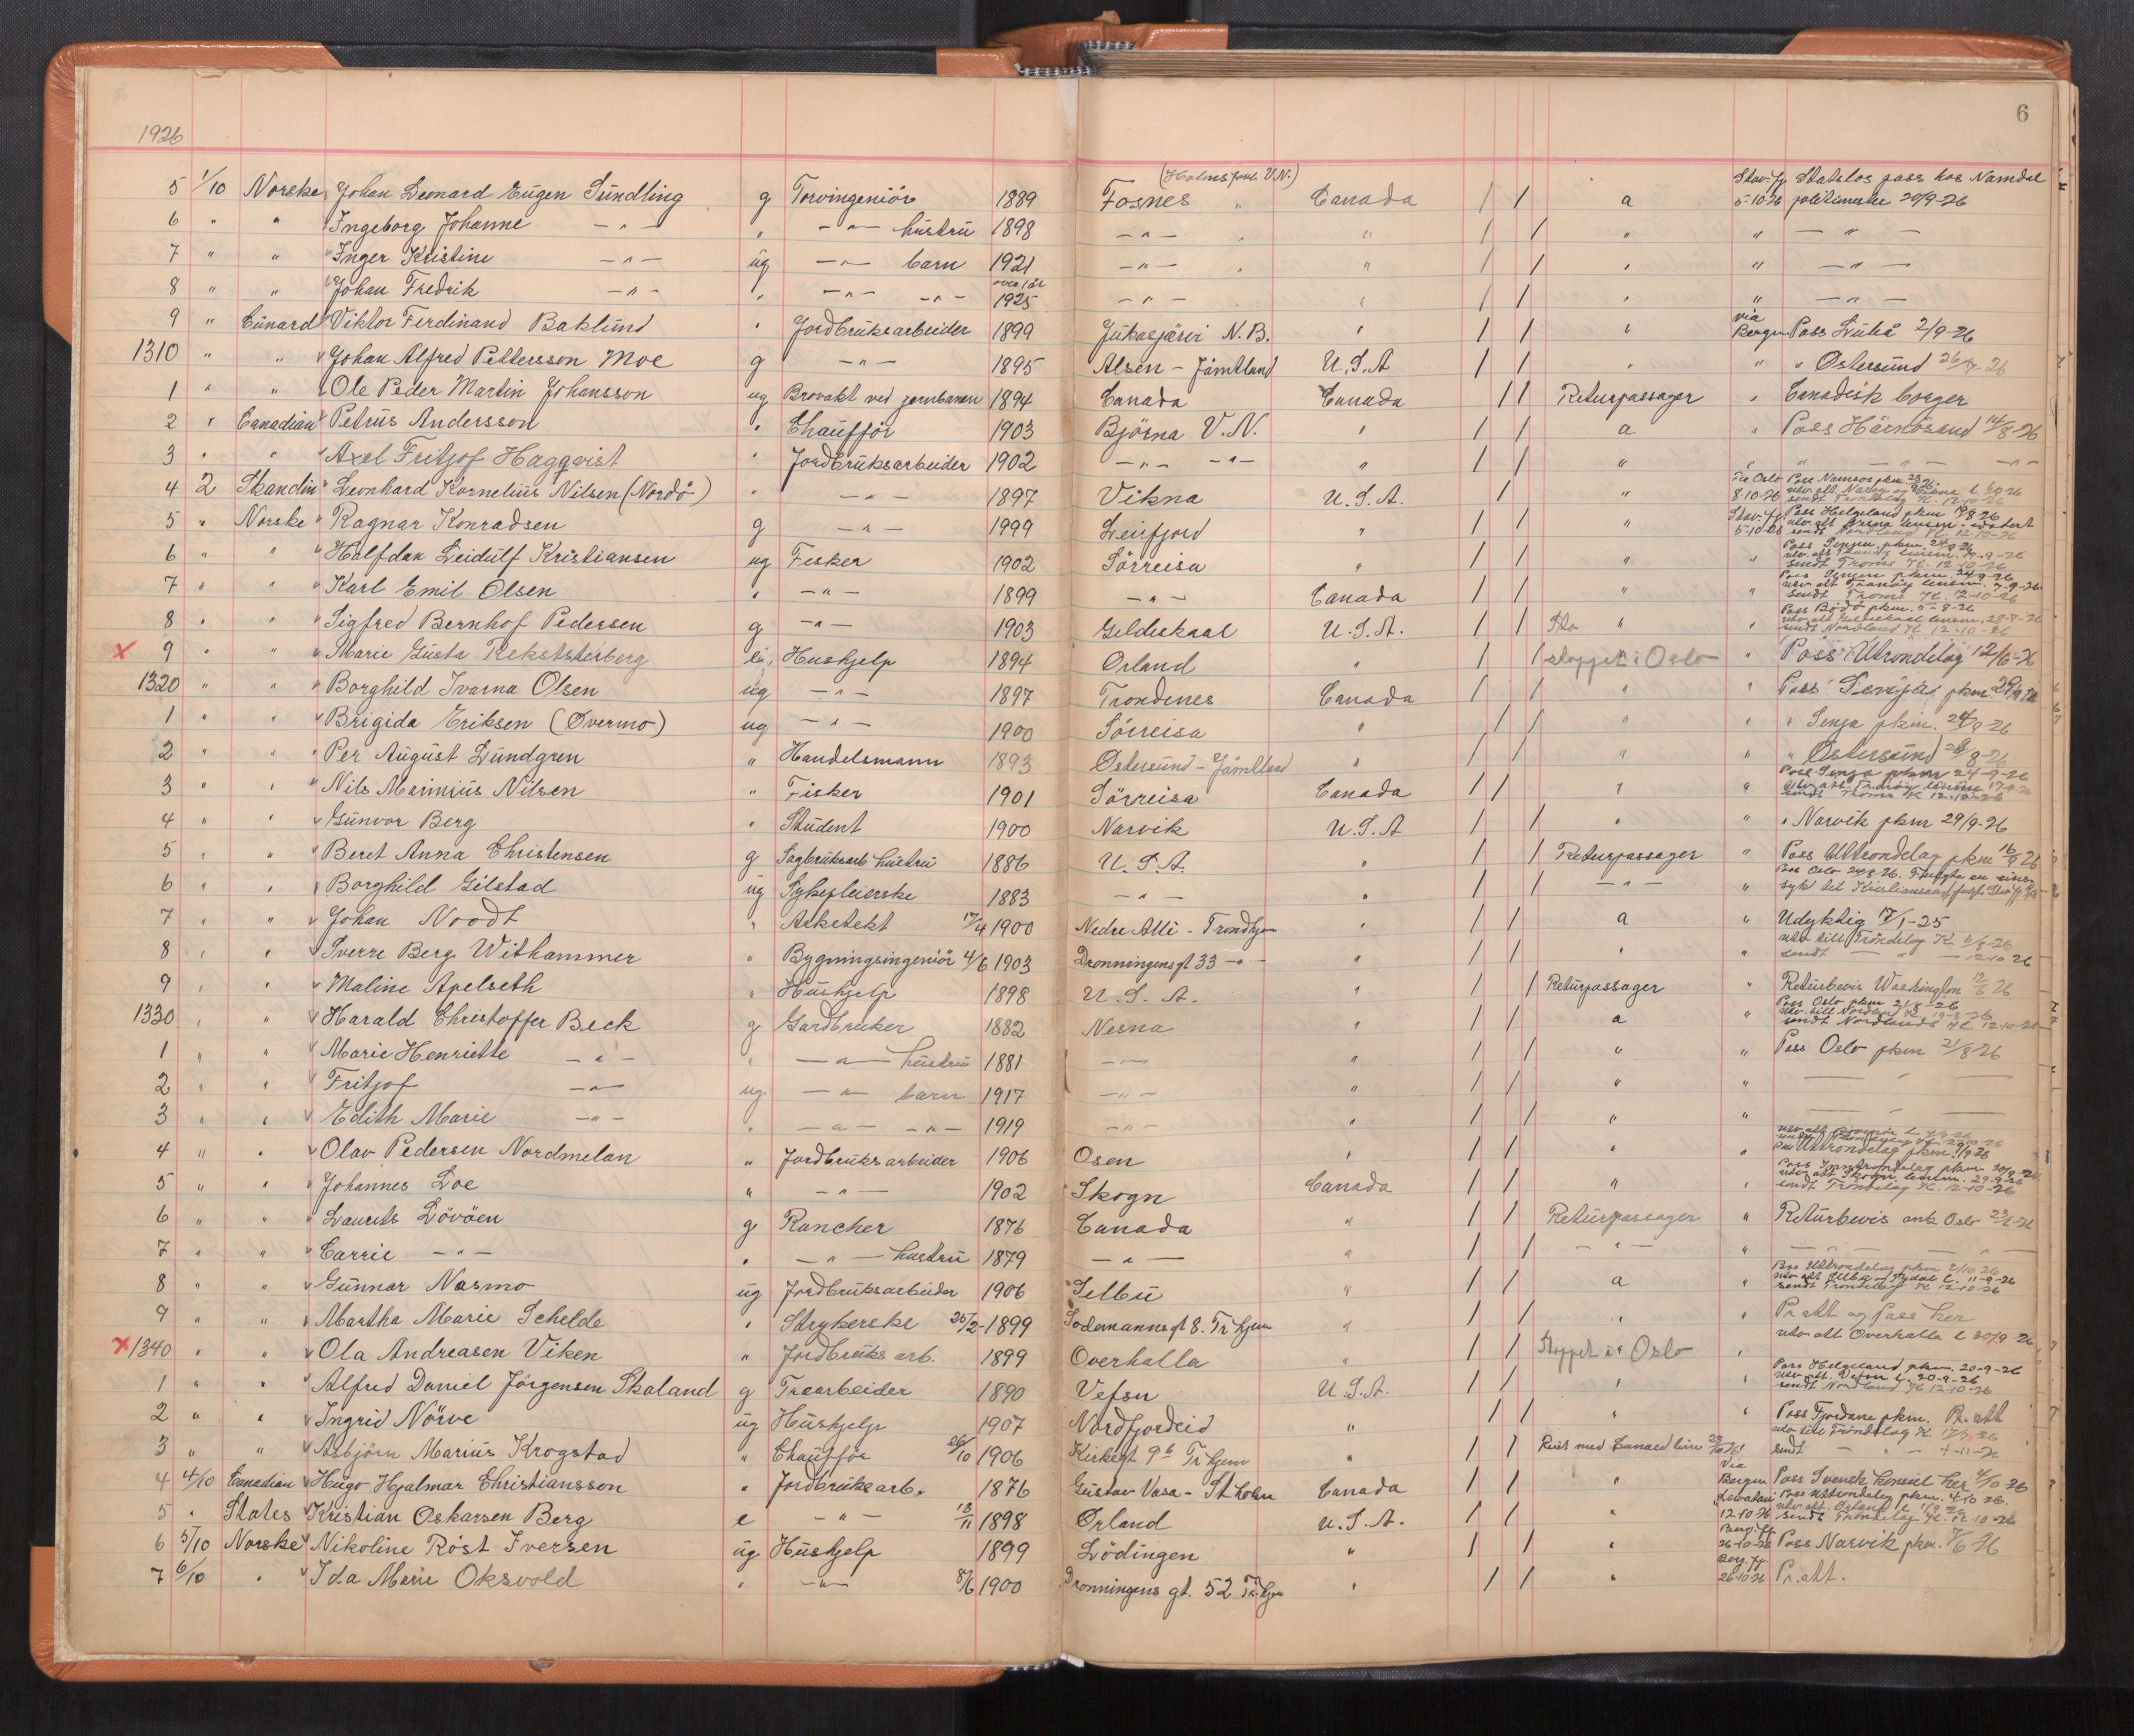 1926
6
5 1/10 Norske Johan Leonard Eugen Sundling g Torvingeniör 1889 Fosnes (Holms V.N.) Canada / / a Stav.fj. 5-10-26 Statslös pass hos Namdal politimester 20/9-26
6 " " Ingeborg Johanne -"- " -"- hustru 1898 -"- " " / / " " -"-
7 " " Inger Kristine -"- ug -"- barn 1921 -"- " " / / " " -"-
8 " " Johan Fredrik -"- " -"- -"- over 1 år 1925 -"- " / / " " -"-
9 " Cunard Viktor Ferdinand Baklund " Jordbruksarbeider 1899 Jukasjärvi N.B. " / / " via Bergen Pass Luleå 2/9-26
1310 " " Johan Alfred Pettersson Moe g -"- 1895 Alsen - Jämtland U.S.A / / " " " Østersund 26/7-26
1 " " Ole Peder Martin Johansson ug Brovakt ved jernbanen 1894 Canada Canada / / Returpassager " Canadisk borger
2 " Canadian Petrus Andersson " Chaufför 1903 Björna V.N. " / / a " Pass Härnösand 14/8-26
3 " " Axel Fritjof Haggqvist " Jordbruksarbeider 1902 -"- -"- " / / " " " -"- -"-
4 2 Skandin Leonhard Kornelius Nilsen (Nordö) " -"- 1897 Vikna U.S.A. / " Fra Oslo 8-10-26 Pass Namsos pkm
5 " Norske Ragnar Konradsen g -"- 1999 Leirfjord " / / " Stav.fj. 5-10-26 Pass Helgeland pkm 19/8 26 sendt Nordland K. 12-10-26
6 " " Halfdan Leidulf Kristiansen ug Fisker 1902 Sörreisa " / / " " Pass Senja pkm 24/9 26 sendt Troms K. 12-10-26
7 " " Karl Emil Olsen " -"- 1899 -"- Canada / / " " Pass Senjen pkm. 24/9-26 utv. att Tranöy lensm. 7-9-26 sendt Troms K. 12-10-26
8 " " Sigfred Bernhof Pedersen g -"- 1903 Gildeskaal U.S.A. / / " " Pass Bodö pkm. 5-8-26 utv. att Gildeskaal lensm. 28-7-26 sendt Nordland K 12-10-26
x 9 " " Marie Gusta Hushjelp 1894 Orland " / / stoppet i Oslo " Pass Uttrondelag 12/6-26
1320 " " Borghild Ivarna Olsen ug -"- 1897 Trondenes Canada / / " " Pass Senja pkm 29/9 26
1 " " Brigida Eriksen (Øvermo) ug -"- 1900 Sörreisa " / / " " " Senja pkm. 24/9-26
2 " " Per August Lundgren " Handelsmann 1893 Østersund - Jämtland " / / " " " Østersund 28/8-26
3 " " Nils Marinius Nilsen " Fisker 1901 Sörreisa Canada / / " " Pass Senja pkm 24-9-26 utv. att. Tranöy lensm. 17-9-26 sendt Troms K 12-10-26
4 " " Gunvor Berg " Student 1900 Narvik U.S.A / / " " " Narvik pkm 29/9-26
5 " " Beret Anna Christensen g Sagbruksarb hustru 1886 U.S.A. " / / Returpassager " Pass Uttrondelag pkm 16/9 26
6 " " Borghild Gilstad ug Sykepleierske 1883 -"- " / / -"- " Pass Oslo 24/8-26. syk til Kristiansand
7 " " Johan Noodt " Arkitekt 17/4 1900 Nedre Alle - Trondhjem " / / a " Udyktig 17/1-25
8 " " Sverre Berg Withammer " Bygningsingeniör 4/6 1903 Dronningensgt 33 -"- " / / " " utv till Tröndelag K 6/8-26 sendt -"- 12-10-26
9 " " Maline Apelseth " Hushjelp 1898 U.S.A. " / / Returpassager " Returbevis Washington 12/6 26
1330 " " Harald Christoffer Beck g Gardbruker 1882 Nesna " / / a " Pass Oslo pkm 21-8-26 utv. till Nordland K. 19-8-26 sendt Nordlands K 12-10-26
1 " " Marie Henriette -"- " -"- hustru 1881 -"- " / / " " Pass Oslo pkm 21/8-26
2 " " Fritjof -"- ug -"- barn 1917 -"- " / / " " -"-
3 " " Edith Marie -"- " -"- -"- 1919 -"- " / / " " -"-
4 " " Olav Pedersen Nordmelan " Jordbruksarbeider 1906 Osen " / / " " Pass Uttrondelag pkm. 1/9 26
5 " " Johannes Loe " -"- 1902 Skogn Canada / / " " Pass Inntrondelag pkm utv. att Skogn lensm. 29-9-26 sendt Tröndelag K. 12-10-26
6 " " Laurits Lövöen g Rancher 1876 Canada " / / Returpassager " Returbevis ank Oslo 23/6-26
7 " " Carrie -"- " -"- hustru 1879 -"- " / / -"- " -"- -"-
8 " " Gunnar Nasmo ug Jordbruksarbeider 1906 Selbu " / / a " Pass Uttrondelag pkm 2/10 26 utv att Selbu - Tydal l. 11-9-26 sendt Tröndelag K 12-10-26
9 " " Martha Marie Schelde " Strykerske 25/2-1899 Sodemannsgt 8. Tr hjem " / / " " Pr att og pass her
x 1340 " " Ola Andreasen Viken " Jordbruks arb. 1899 Overhalla " / / Stoppet i Oslo " utv att Overhalla l 30/9 26
1 " " Alfred Daniel Jörgensen Skaland g Traarbeider 1890 Vefsn U.S.A. / / " " Pass Helgeland pkm. 20-9-26 utv. att. Vefsn l. 20-9-26 sendt Nordland K 12-10-26
2 " " Ingrid Nörve ug Hushjelp 1907 Nordfjordeid " / / " " Pass Fjordane pkm. Pr. att
3 " " Asbjörn Marius Krogstad " Chaufför 26/10 1906 Kirkegt 9b Tr hjem " / / Reist med Cunard line utv till Tröndelag K sendt -"- 4-11-26
4 4/10 Canadian Hugo Hjalmar Christiansson " Jordbruksarb. 1876 Gustav Vasa - St holm Canada / / " Via Bergen Pass Svensk konsul her 4/10-26
5 " States Kristian Oskarsen Berg e -"- 13/11 1898 Ørland U.S.A. / / " 12-10-26 Pass Uttrondelag pkm. 4/10 26. utv att. Örland l sendt Tröndelag K. 12-10-26
6 5/10 Norske Nikoline Röst Iversen ug Hushjelp 1899 Lödingen " / / " Berg.fj. 26-10-26 Pass Narvik pkm. 7/6 26
7 6/10 " Ida Marie Oksvold " -"- 8/6 1900 Dronningens gt. 52 Tr.hjem " / / " Berg.fj. 26-10-26 Pr. att.